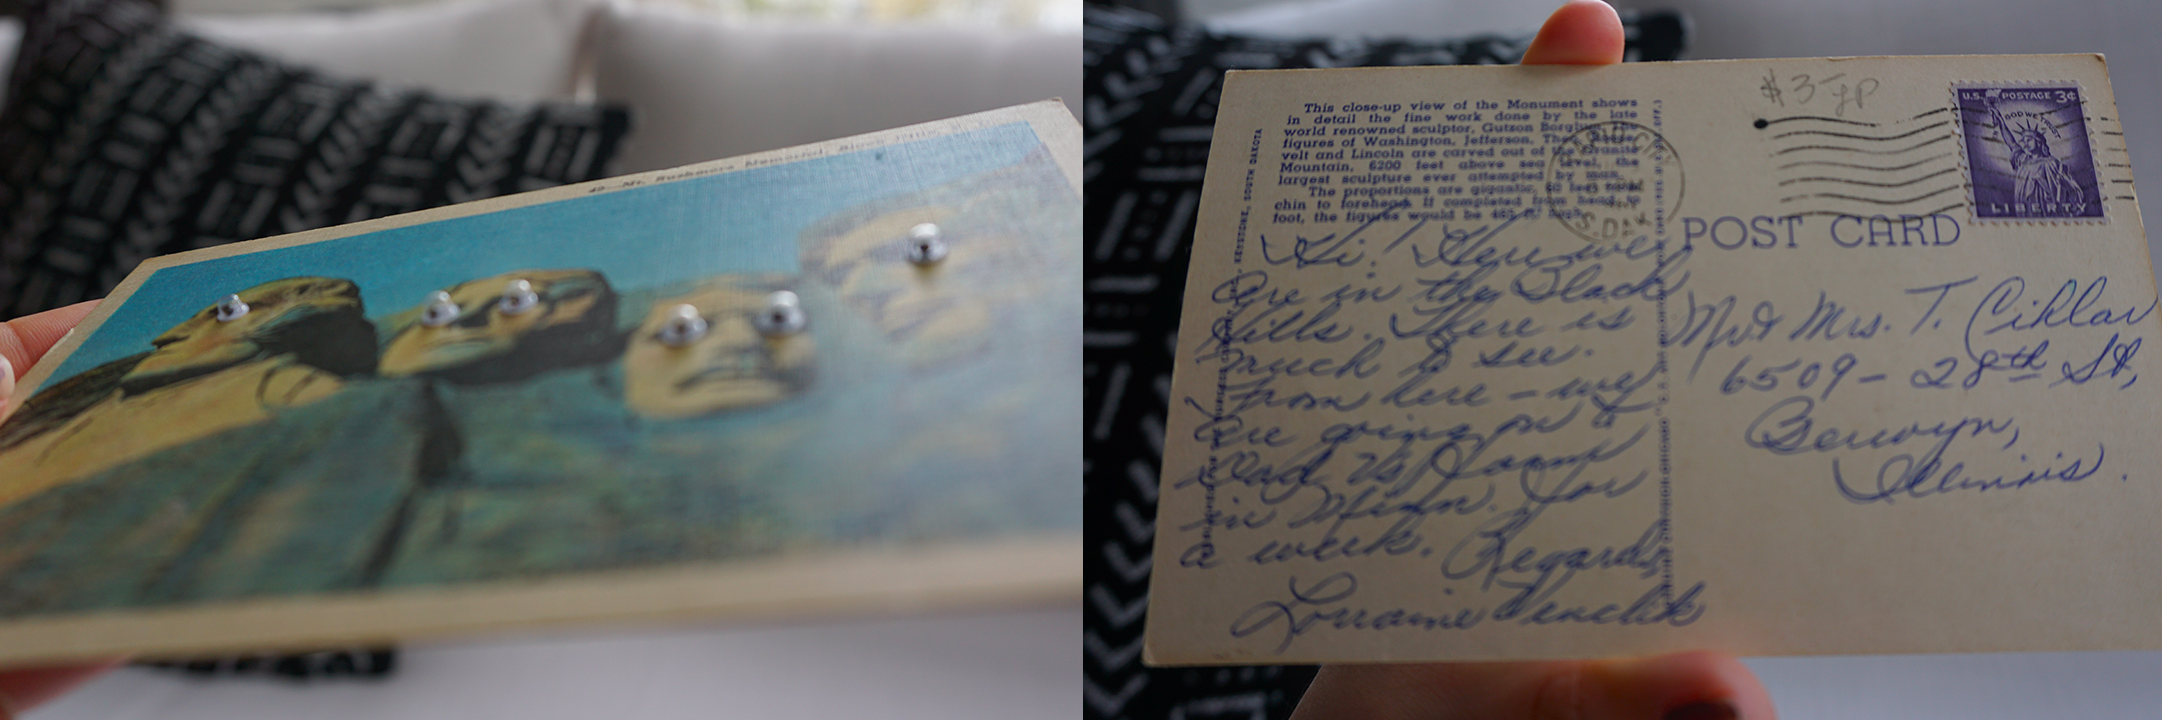 40—Mt. Rushmore Memorial, Black
This close-up view of the Monument shows
in detail the fine work done by the late
world renowned sculptor, Gutzon Borglum. The
figures of Washington, Jefferson, Theo. Roose-
velt and Lincoln are carved out of the Granite
Mountain, 6200 feet above sea level, the
largest sculpture ever attempted by man.
The proportions are gigantic, 60 feet from
chin to forehead. If completed from head to
foot, the figures would be 465 ft. high.
KEYSTONE, SOUTH DAKOTA
$3- JP
U.S. POSTAGE 3¢
IN GOD WE TRUST
LIBERTY
S. DAK.
POST CARD
Hi! Here we
are in the Black
Hills. There is
much to see.
From here – we
are going on to
Dad V's farm
in Minn. for
a week. Regards,
Lorraine
Mr & Mrs. T. Ciklar
6509 – 28th St,
Berwyn,
Illinois.